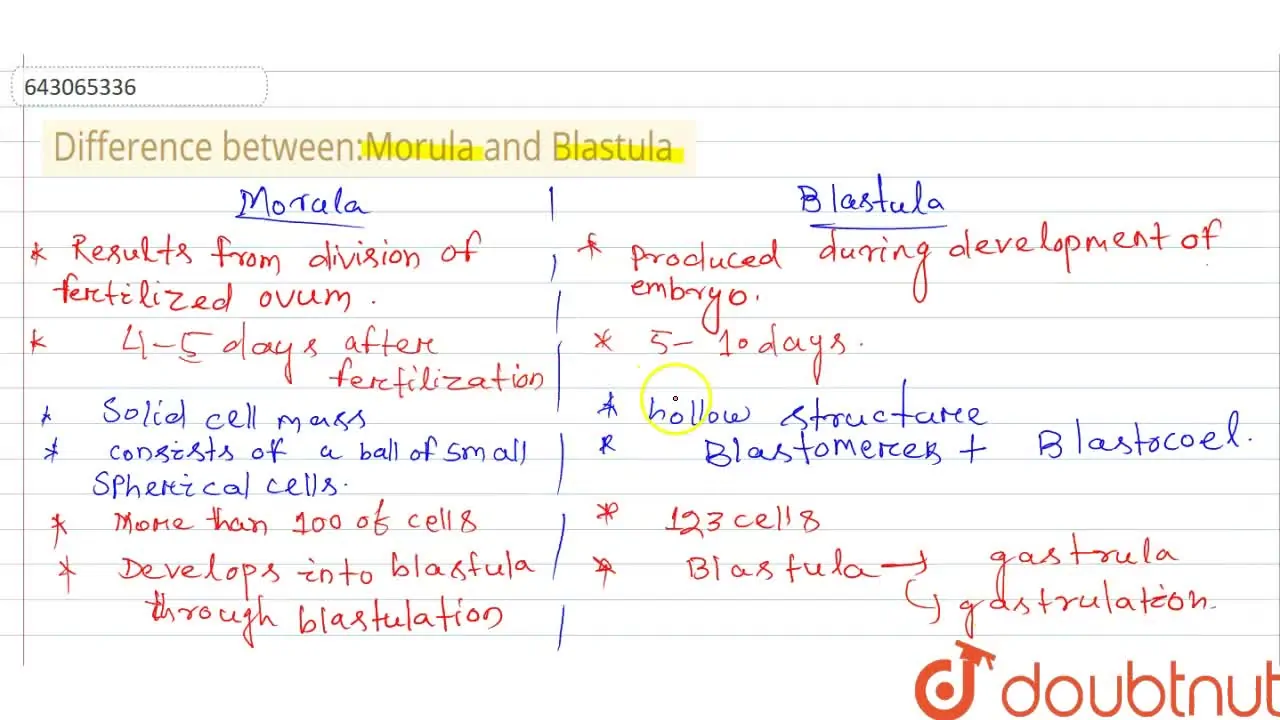 643065336
Difference between:Morula and Blastula
Morula
Blastula
* Results from division of
fertilized ovum.
* Produced during development of
embryo.
* 4-5 days after
fertilization
* 5-10 days.
* Solid cell mass
* hollow structure
* consists of a ball of small
Spherical cells.
* Blastomeres + Blastocoel.
* More than 100 of cells
* 123 cells
* Develops into blastula
through blastulation
* Blastula → gastrula
↳ gastrulation.
doubtnut